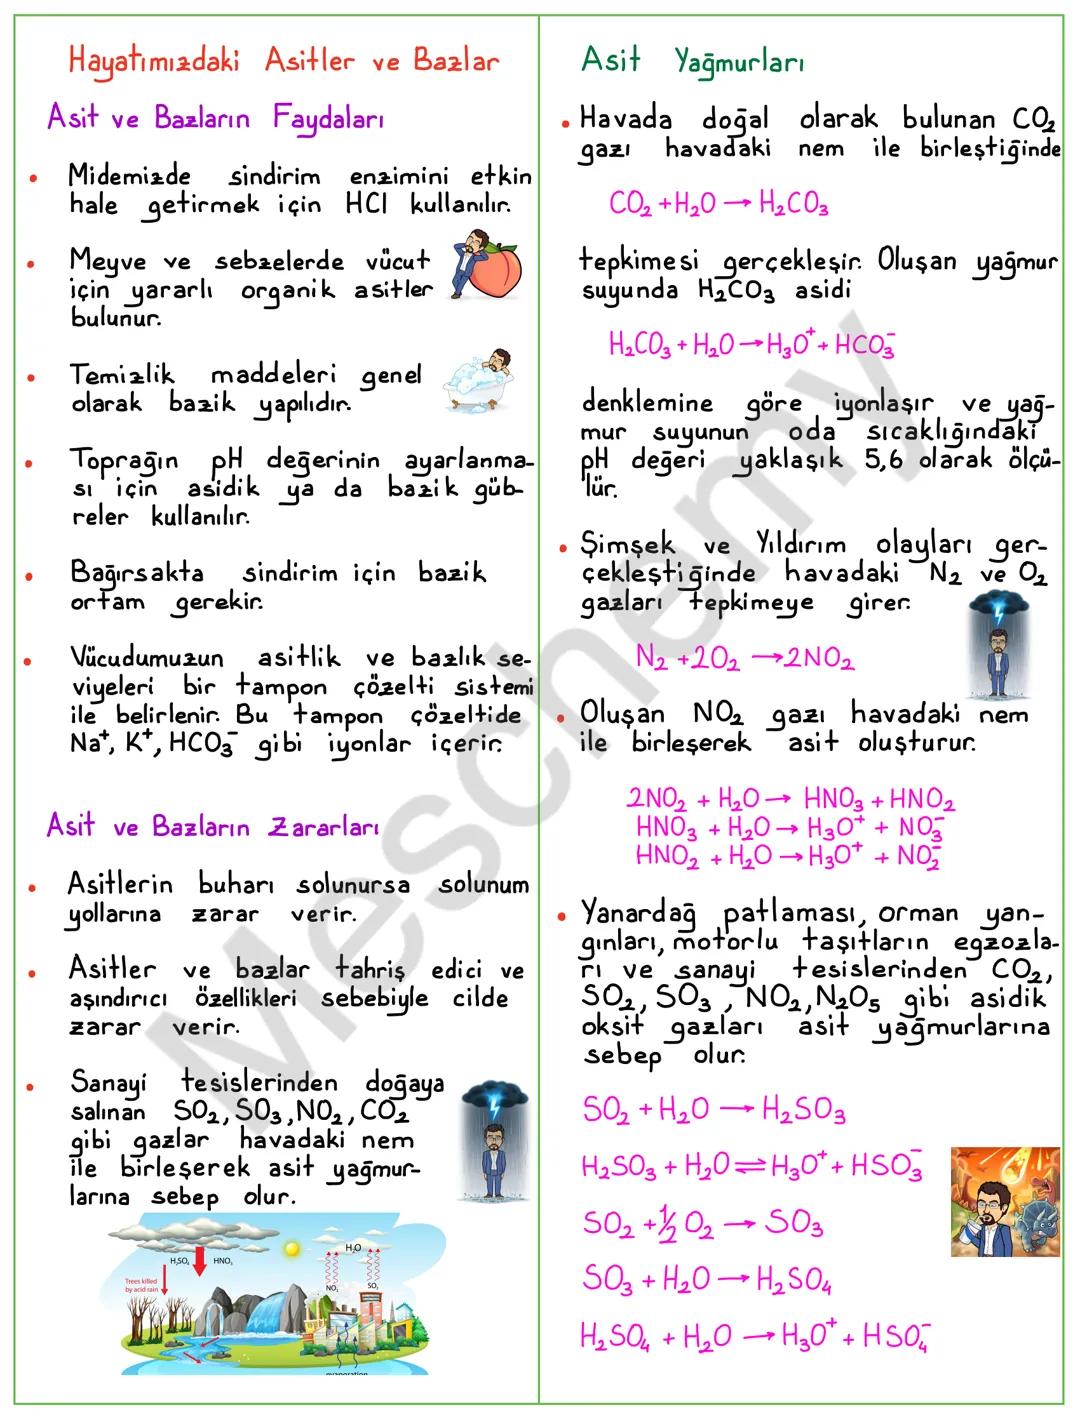 Hayatımızdaki Asitler ve Bazlar
Asit ve Bazların Faydaları
• Midemizde sindirim enzimini etkin
hale getirmek için HCl kullanılır.
• Meyve ve sebzelerde vücut
için yararlı organik asitler
bulunur.
• Temizlik maddeleri genel
olarak bazik yapılıdır.
• Toprağın pH değerinin ayarlanma-
sı için asidik ya da bazik güb-
reler kullanılır.
• Bağırsakta sindirim için bazik
ortam gerekir.
• Vücudumuzun asitlik ve bazlık se-
viyeleri bir tampon çözelti sistemi
ile belirlenir. Bu tampon çözeltide
Na⁺, K⁺, HCO₃⁻ gibi iyonlar içerir.
Asit ve Bazların Zararları
• Asitlerin buharı solunursa solunum
yollarına zarar verir.
• Asitler ve bazlar tahriş edici ve
aşındırıcı özellikleri sebebiyle cilde
zarar verir.
• Sanayi tesislerinden doğaya
salınan SO₂, SO₃, NO₂, CO₂
gibi gazlar havadaki nem
ile birleşerek asit yağmur-
larına sebep olur.
H₂SO₄ HNO₃
H₂O
Trees killed
by acid rain
NO₂ SO₂
evaporation
Asit Yağmurları
• Havada doğal olarak bulunan CO₂
gazı havadaki nem ile birleştiğinde
CO₂ + H₂O → H₂CO₃
tepkimesi gerçekleşir. Oluşan yağmur
suyunda H₂CO₃ asidi
H₂CO₃ + H₂O → H₃O⁺ + HCO₃⁻
denklemine göre iyonlaşır ve yağ-
mur suyunun oda sıcaklığındaki
pH değeri yaklaşık 5,6 olarak ölçü-
lür.
• Şimşek ve Yıldırım olayları ger-
çekleştiğinde havadaki N₂ ve O₂
gazları tepkimeye girer.
N₂ + 2O₂ → 2NO₂
• Oluşan NO₂ gazı havadaki nem
ile birleşerek asit oluşturur.
2NO₂ + H₂O → HNO₃ + HNO₂
HNO₃ + H₂O → H₃O⁺ + NO₃⁻
HNO₂ + H₂O → H₃O⁺ + NO₂⁻
• Yanardağ patlaması, orman yan-
gınları, motorlu taşıtların egzozla-
rı ve sanayi tesislerinden CO₂,
SO₂, SO₃, NO₂, N₂O₅ gibi asidik
oksit gazları asit yağmurlarına
sebep olur.
SO₂ + H₂O → H₂SO₃
H₂SO₃ + H₂O ⇌ H₃O⁺ + HSO₃⁻
SO₂ + ½ O₂ → SO₃
SO₃ + H₂O → H₂SO₄
H₂SO₄ + H₂O → H₃O⁺ + HSO₄⁻
Meschemy